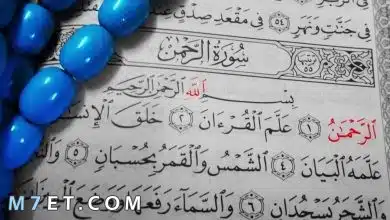 فِى جَنَّٰتٍ وَنَهَرٍ ٥٤ فِى مَقْعَدِ صِدْقٍ
سُورَةُ الرَّحْمٰن
٥٥
بِسْمِ اللَّهِ الرَّحْمَٰنِ الرَّحِيمِ
ٱلرَّحْمَٰنُ ١ عَلَّمَ ٱلْقُرْءَانَ ٢ خَلَقَ ٱلْإِنسَٰ
عَلَّمَهُ ٱلْبَيَانَ ٤ ٱلشَّمْسُ وَٱلْقَمَرُ بِحُسْبَانٍ ٥ وَٱلنَّ
وَٱلشَّجَرُ يَسْجُدَانِ ٦ وَٱلسَّمَآءَ رَفَعَهَا وَوَضَعَ ٱلْمِيزَانَ
M7ET.COM